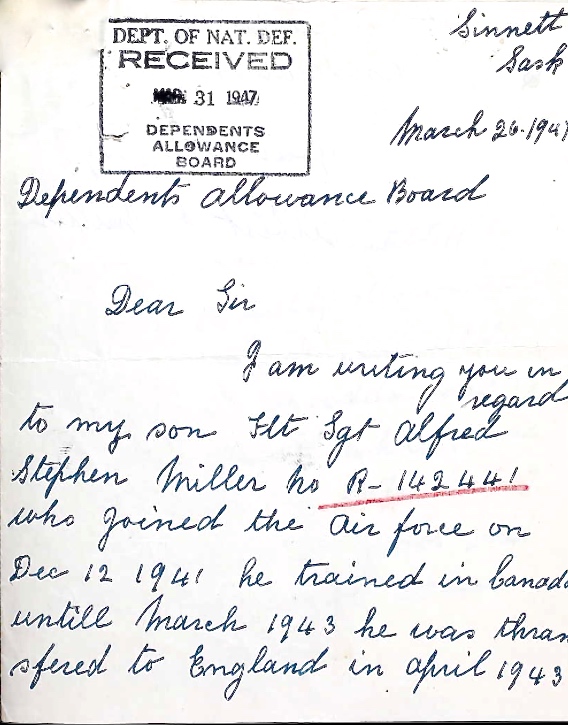 DEPT. OF NAT. DEF.
RECEIVED
MAR 31 1947
DEPENDENTS
ALLOWANCE
BOARD
Sinnett
Sask
March 26. 1947
Dependents Allowance Board
Dear Sir
I am writing you in
regard
to my son Flt Sgt Alfred
Stephen Miller No R-142441
who joined the air force on
Dec 12 1941 he trained in Canada
untill March 1943 he was thran
sfered to England in april 1943